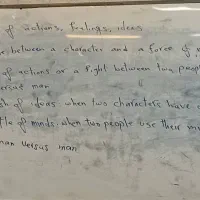 of actions, feelings, ideas
between a character and a force of
of actions or a fight between two peop
ersus man
sh of ideas. when two characters have
tle of minds. when two people use their mi
man versus man